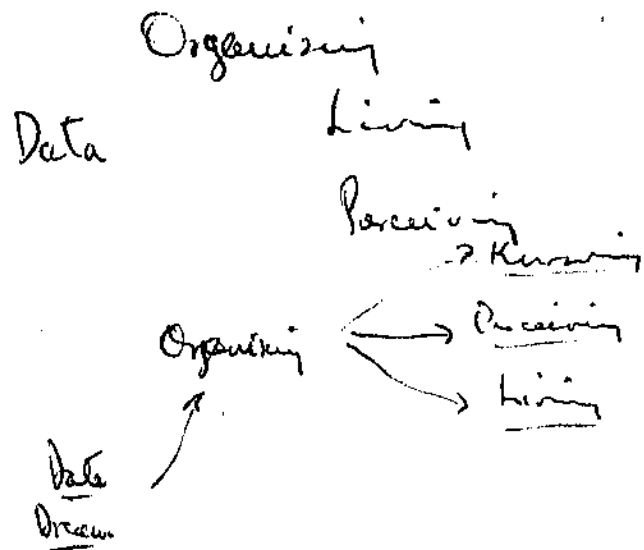 Organising
Data Living
Perceiving
→ Knowing
Organising → Perceiving
Living
Data